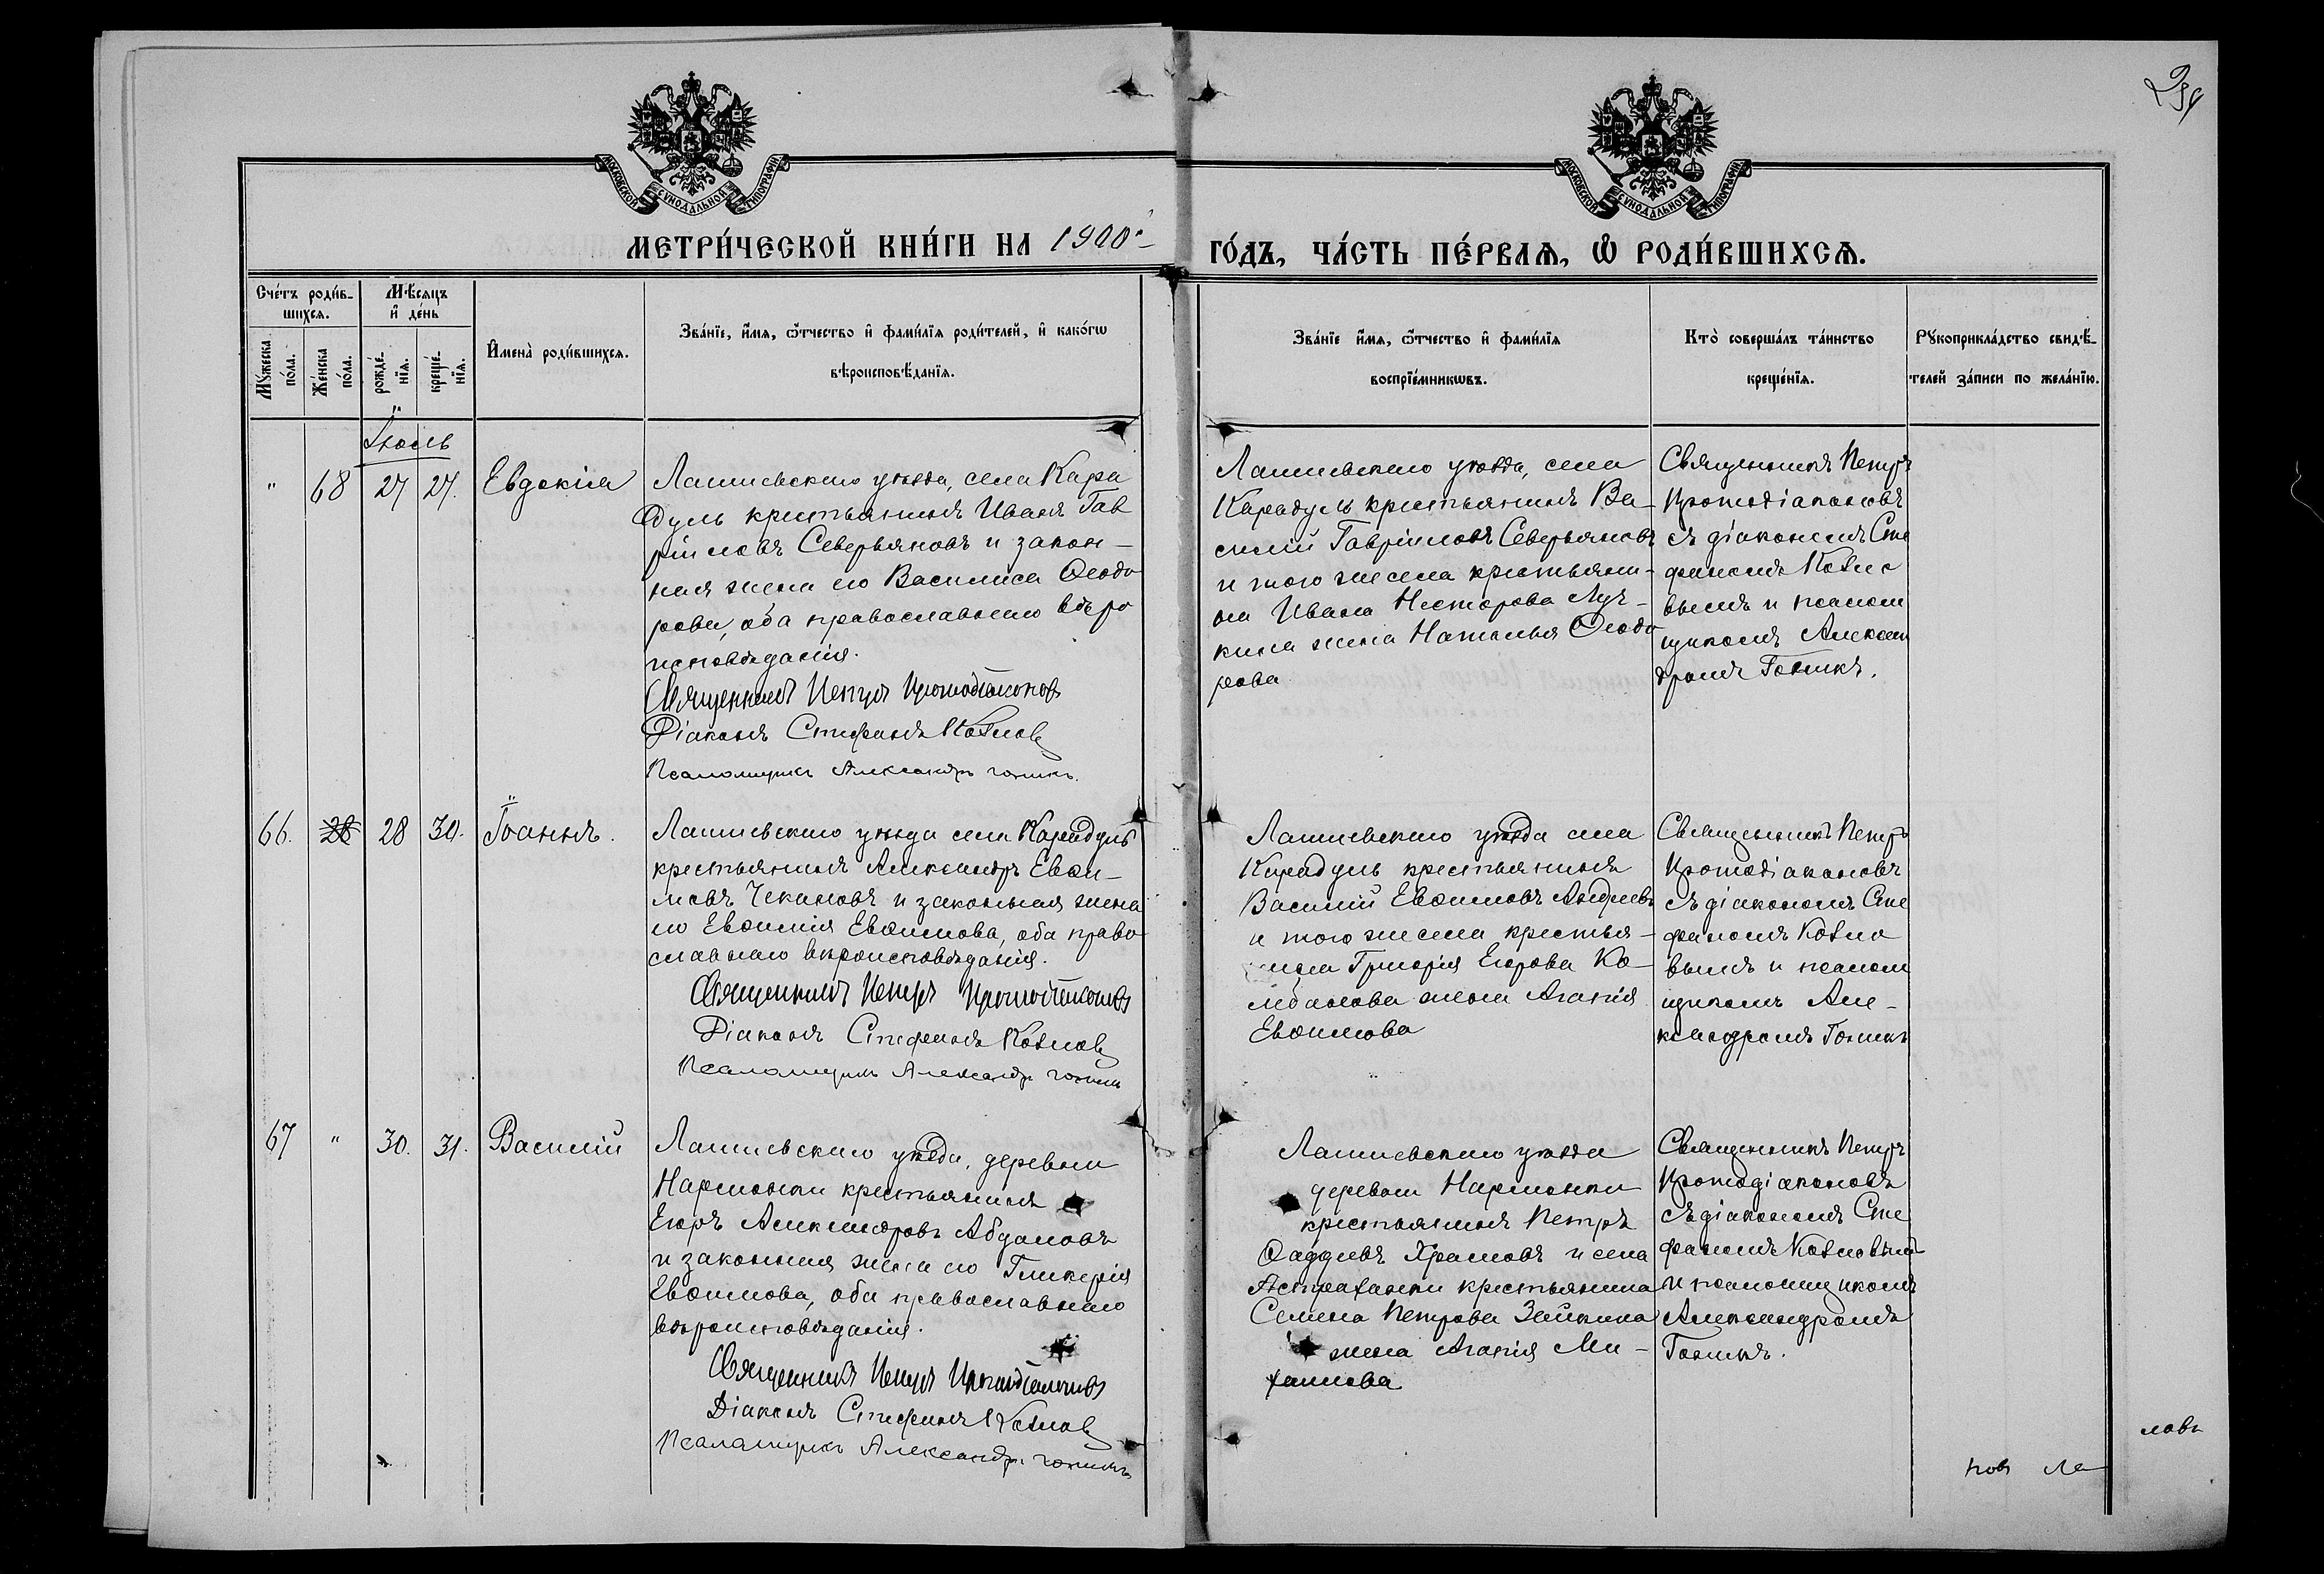 МОСКОВСКОЙ СѴНОДАЛЬНОЙ ТИПОГРАФІИ
МОСКОВСКОЙ СѴНОДАЛЬНОЙ ТИПОГРАФІИ
МЕТРИ́ЧЕСКОЙ КНИ́ГИ НА 1900
ГО́ДЪ, ЧА́СТЬ ПЕ́РВАѦ, Ѽ РОДИ́ВШИХСѦ.
Сче́тъ роди́в-
шихсѧ.
Мѣ́сѧцъ
и҆ де́нь
Мꙋ́жеска
по́ла.
Же́нска
по́ла.
рожде́-
нїѧ.
креще́-
нїѧ.
И҆мена̀ роди́вшихсѧ.
Зва́нїе, и҆́мѧ, ѻ҆́тчество и҆ фами́лїѧ роди́телей, и҆ како́гѡ
вѣроисповѣ́данїѧ.
Зва́нїе и҆́мѧ, ѻ҆́тчество и҆ фами́лїѧ
воспрїе́мникѡвъ.
Кто̀ соверша́лъ та́инство
креще́нїѧ.
Рꙋкоприкла́дство свидѣ́-
телей за́писи по жела́нїю.
Іюль
" 68 27 27. Евдокіа
Лаишевскаго уѣзда, села Кара
дуль крестьянинъ Иванъ Гав
ріиловъ Северьяновъ и закон-
ная жена его Василиса Ѳеодо
рова, оба православнаго вѣро
исповѣданія.
Священникъ Петръ Протодіаконовъ
Діаконъ Стефанъ Козловъ
Псаломщикъ Александръ Готинъ
Лаишевскаго уѣзда, села
Карадуль крестьянинъ Ва-
силій Гавріиловъ Северьяновъ
и того же села крестьяни-
на Ивана Несторова Луч-
кина жена Наталья Ѳеодо
рова
Священникъ Петръ
Протодіаконовъ
съ діакономъ Сте
фаномъ Козло
вымъ и псалом
щикомъ Алексан
дромъ
66. 28 30. Іоаннъ.
Лаишевскаго уѣзда села Карадуль
крестьянинъ Александръ Евѳи-
мовъ Чекановъ и законная жена
его Евѳимія Евѳимова, оба право
славнаго вѣроисповѣданія.
Священникъ Петръ Протодіаконовъ
Діаконъ Стефанъ Козловъ
Псаломщикъ Александръ
Лаишевскаго уѣзда села
Карадуль крестьянинъ
Василій Евѳимовъ Андреевъ
и того же села крестья-
нина Григорія Егорова Ко-
жена Агапія
Евѳимова
Священникъ Петръ
Протодіаконовъ
съ діакономъ Сте
фаномъ Козло
вымъ и псалом
щикомъ Але-
ксандромъ
67 " 30. 31. Василій
Лаишевскаго уѣзда, деревни
Нармонки крестьянинъ
Егоръ Александровъ Абдаловъ
и законная жена его Гликерія
Евѳимова, оба православнаго
вѣроисповѣданія.
Священникъ Петръ Протодіаконовъ
Діаконъ Стефанъ Козловъ
Псаломщикъ Александръ
Лаишевскаго уѣзда
деревни Нармонки
крестьянинъ Петръ
Ѳаддеевъ Храмовъ и села
Астраханки крестьянина
Семена Петрова Зайкина
жена Агапія Ми-
хаилова
Священникъ Петръ
Протодіаконовъ
съ діакономъ Сте
фаномъ Козловымъ
и псаломщикомъ
Александромъ
ловъ
новъ